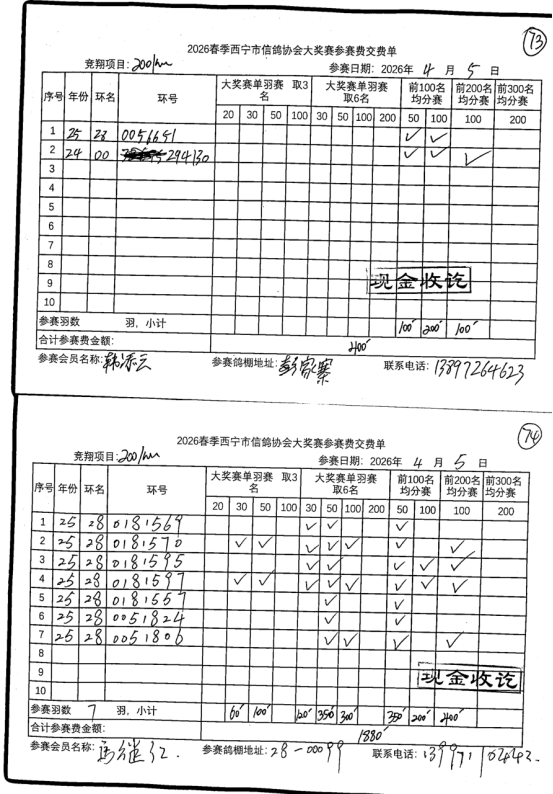 73
2026春季西宁市信鸽协会大奖赛参赛费交费单
竞翔项目:200km 参赛日期: 2026年 4 月 5 日
序号 年份 环名 环号 大奖赛单羽赛 取3名 大奖赛单羽赛 取6名 前100名均分赛 前200名均分赛 前300名均分赛
20 30 50 100 30 50 100 200 50 100 100 200
1 25 28 0056651 ✓ ✓
2 24 00 294130 ✓ ✓ ✓
3
4
5
6
7
8
9
10
现金收讫
参赛羽数 羽, 小计 100 200 100
合计参赛费金额: 400
参赛会员名称:韩添云 参赛鸽棚地址:彭家寨 联系电话: 13897264623
74
2026春季西宁市信鸽协会大奖赛参赛费交费单
竞翔项目:200km 参赛日期: 2026年 4 月 5 日
序号 年份 环名 环号 大奖赛单羽赛 取3名 大奖赛单羽赛 取6名 前100名均分赛 前200名均分赛 前300名均分赛
20 30 50 100 30 50 100 200 50 100 100 200
1 25 28 0181569 ✓ ✓ ✓
2 25 28 0181570 ✓ ✓ ✓ ✓ ✓ ✓ ✓
3 25 28 0181595 ✓ ✓ ✓ ✓ ✓
4 25 28 0181597 ✓ ✓ ✓ ✓ ✓ ✓ ✓ ✓
5 25 28 0181557 ✓ ✓
6 25 28 0051824 ✓ ✓
7 25 28 0051806 ✓ ✓ ✓ ✓
8
9
10
现金收讫
参赛羽数 7 羽, 小计 60 100 120 350 300 350 200 400
合计参赛费金额: 1880
参赛会员名称: 马继红. 参赛鸽棚地址: 28-00099 联系电话: